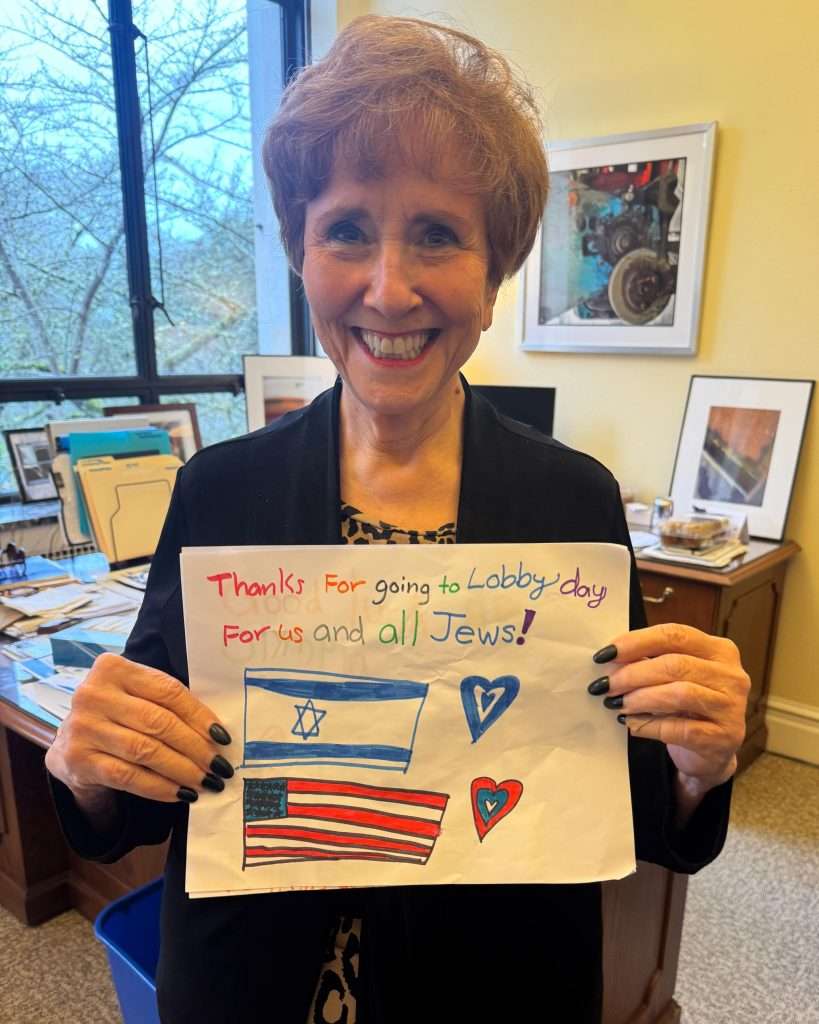 Thanks For going to Lobby day
For us and all Jews!